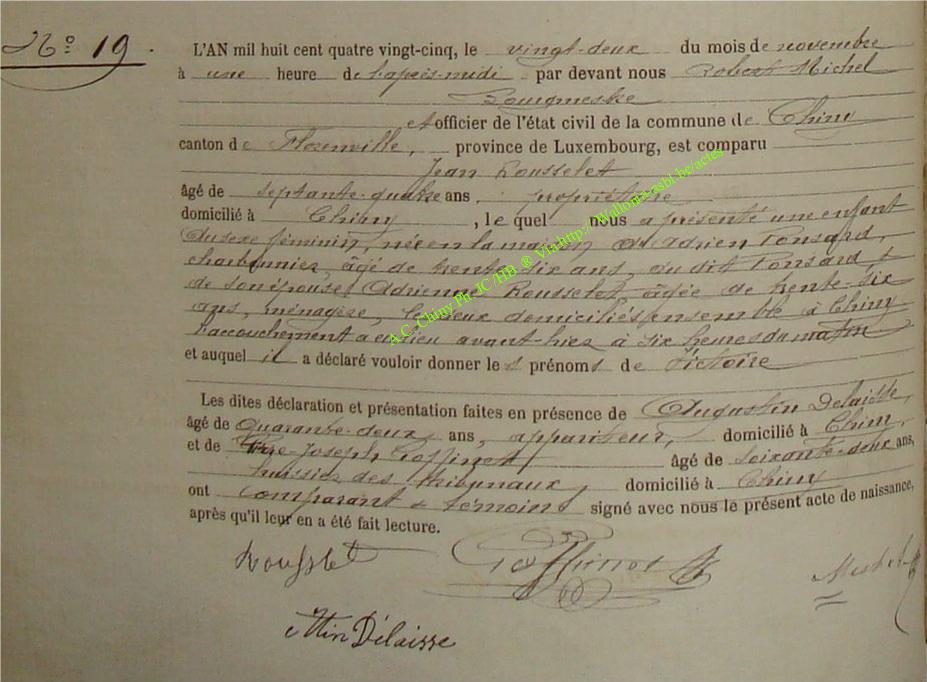 No 19.
L'AN mil huit cent quatre vingt-cinq, le vingt-deux du mois de novembre
à une heure de l'après-midi par devant nous Robert Michel
Bourgmestre
officier de l'état civil de la commune de Chiny
canton de Florenville, province de Luxembourg, est comparu
Jean Rousselet
âgé de septante-quatre ans, propriétaire
domicilié à Chiny, le quel nous a présenté une enfant
du sexe féminin, née en la maison d'Adrien Ponsard,
charbonnier, âgé de trente six ans, du dit Ponsard &
de son épouse Adrienne Rousselet, âgée de trente-six
ans, ménagère, les deux domiciliés ensemble à Chiny
l'accouchement a eu lieu avant-hier à six heures du matin
et auquel il a déclaré vouloir donner le s prénoms de Victoire
Les dites déclaration et présentation faites en présence de Augustin Delaisse,
âgé de Quarante-deux ans, appariteur, domicilié à Chiny,
et de Joseph Goffinet âgé de soixante-deux ans,
huissier des tribunaux, domicilié à Chiny
ont comparant & témoins signé avec nous le présent acte de naissance,
après qu'il leur en a été fait lecture.
Rousslet Goffinet Michel
Délaisse
A.C. Chiny Ph JC/HB ® Via http://Wallonia.asbl.be/actes